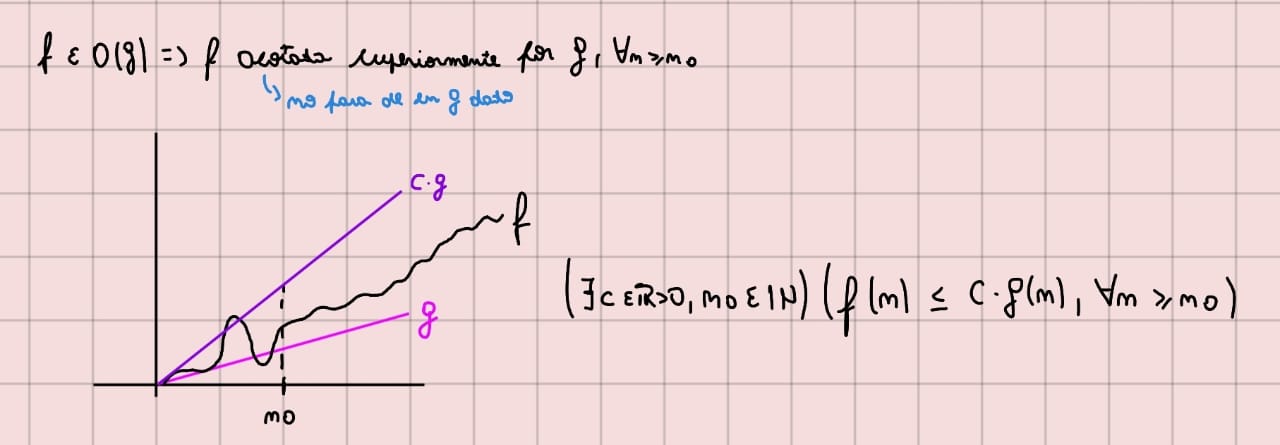 f ∈ O(g) => f acotada superiormente por g, ∀n≥n0
↳ no pasa de un g dado
c·g
f
g
n0
(∃c∈ℝ>0, n0∈ℕ)(f(n) ≤ c·g(n), ∀n≥n0)